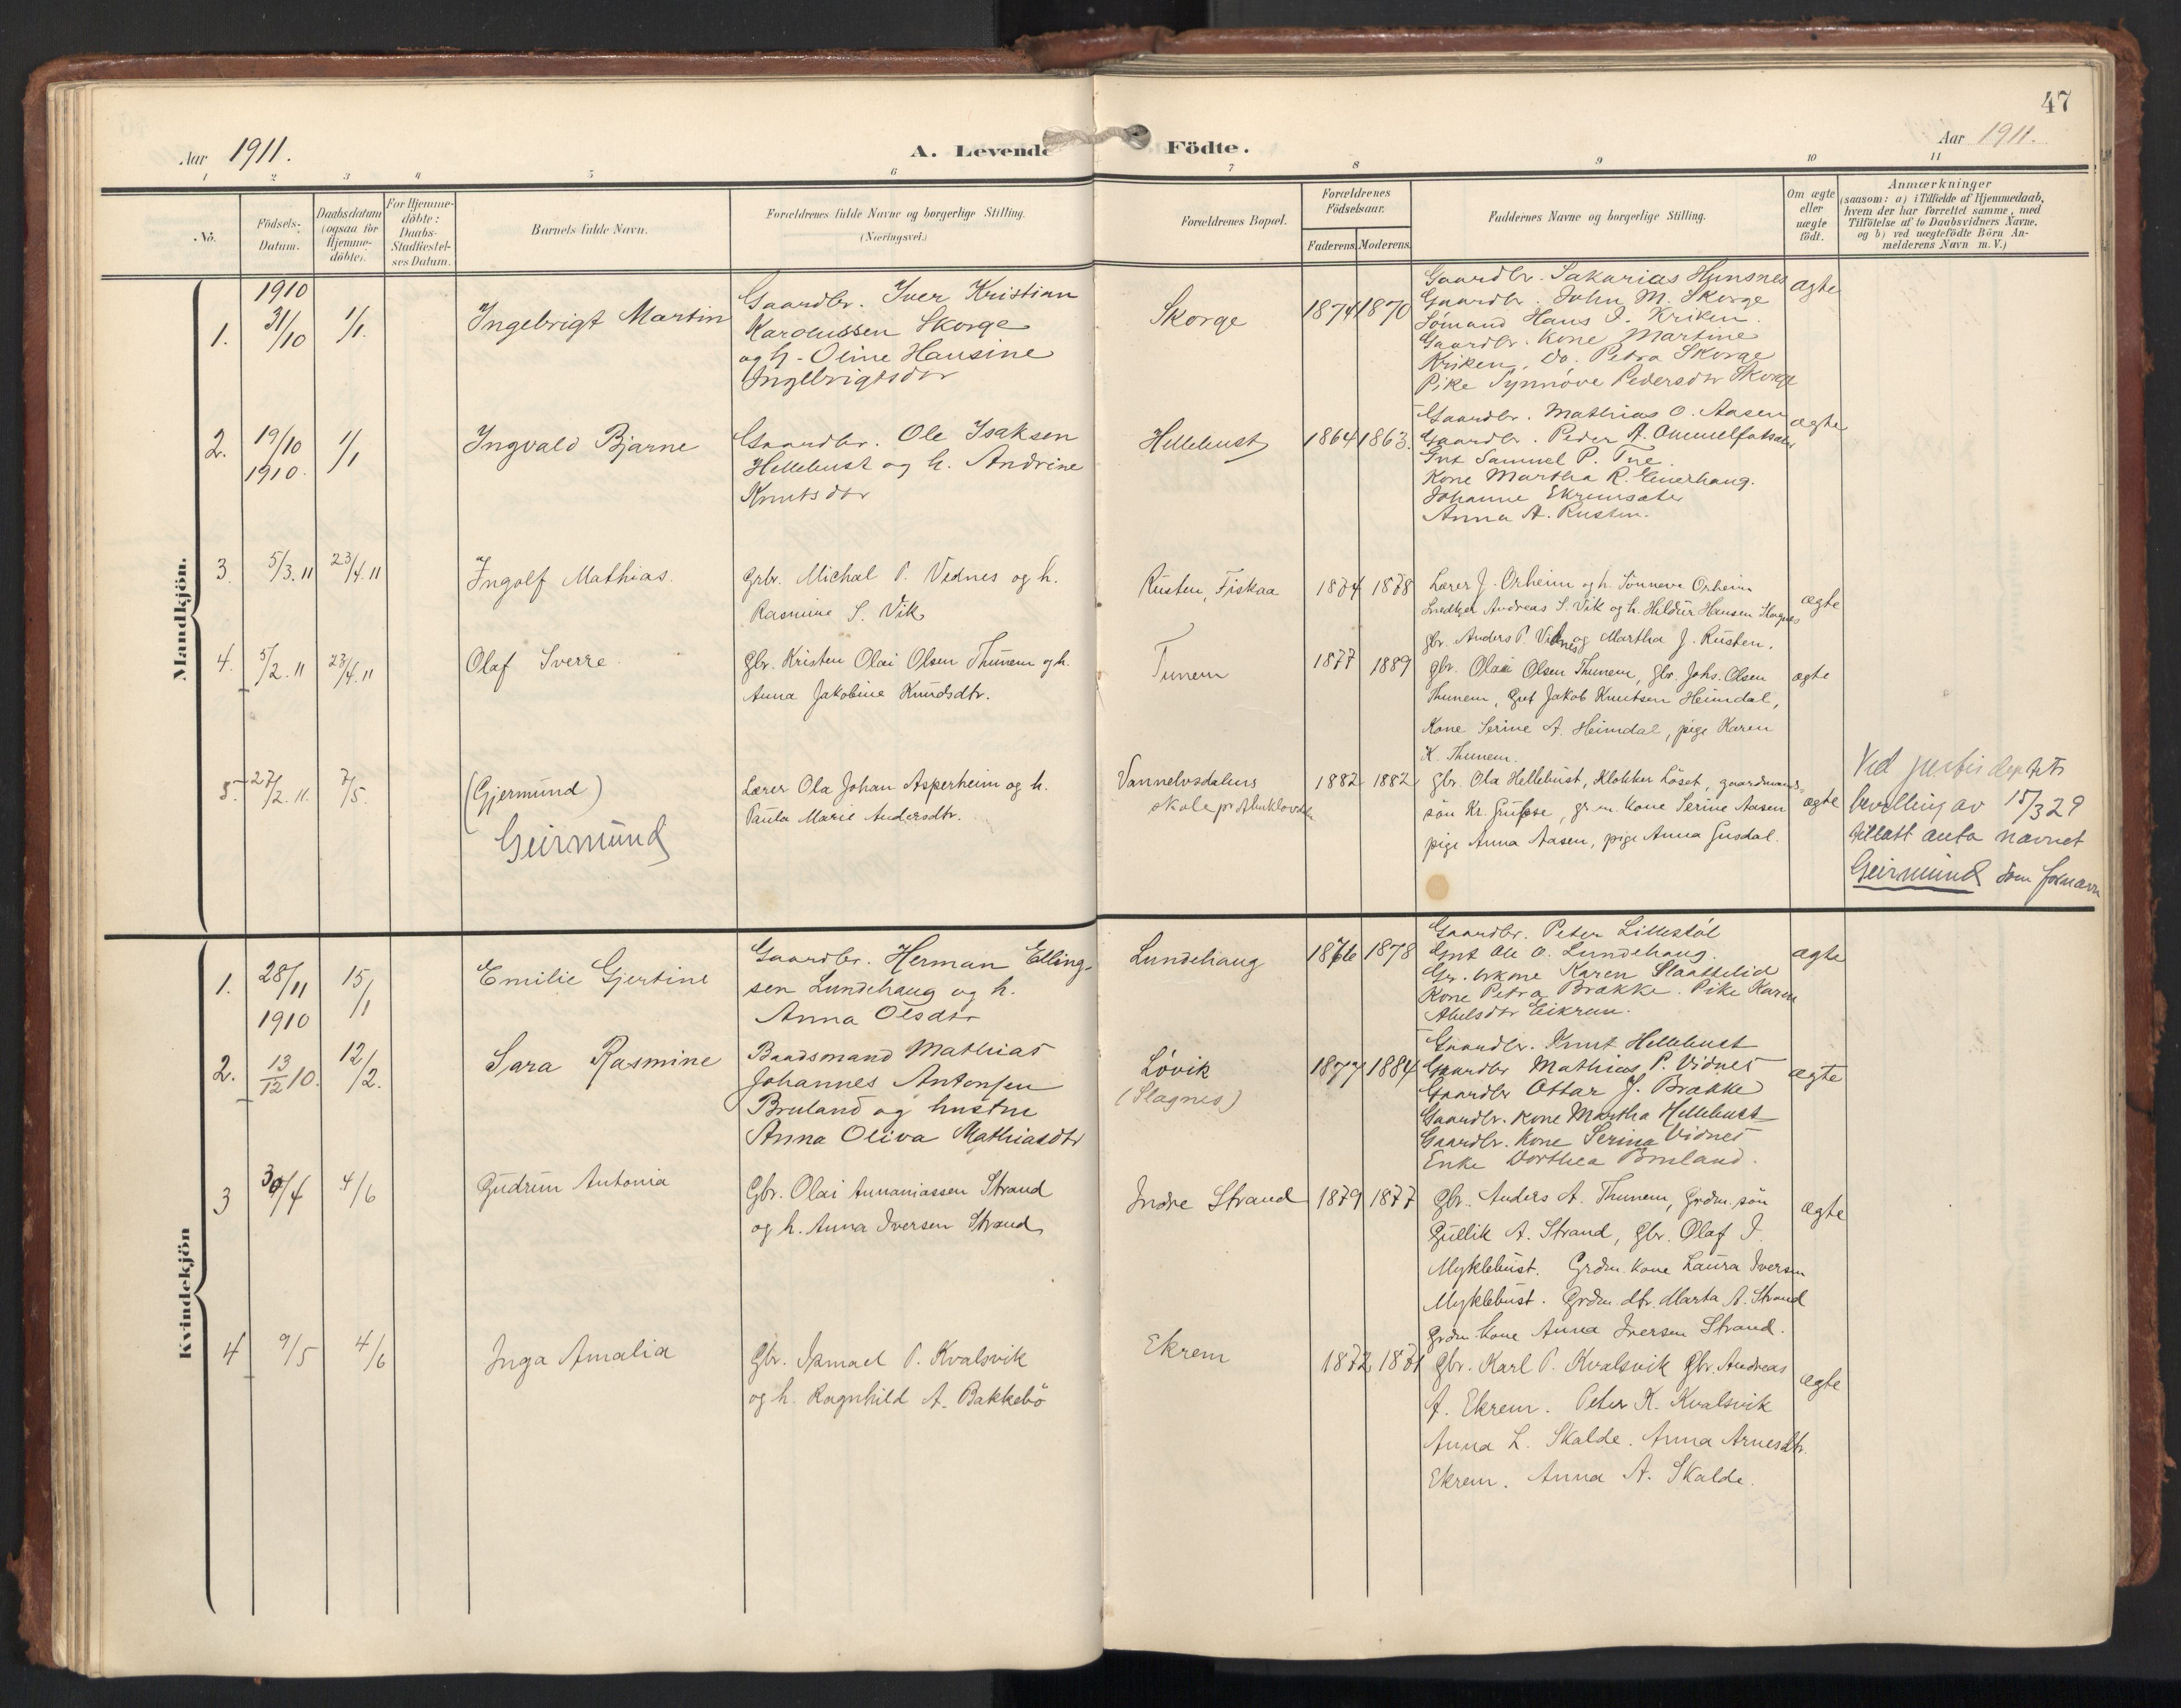 47
Aar 1911.
A. Levende Födte.
Aar 1911.
1 2 3 4 5 6 7 8 9 10 11
No.
Födsels-
Datum.
Daabsdatum
(ogsaa for
Hjemme-
döbte).
For Hjemme-
döbte:
Daabs-
Stadfæstel-
ses Datum.
Barnets fulde Navn.
Forældrenes fulde Navne og borgerlige Stilling.
(Næringsvei.)
Forældrenes Bopæl.
Forældrenes
Födselsaar.
Faderens. Moderens.
Faddernes Navne og borgerlige Stilling.
Om ægte
eller
uægte
födt.
Anmærkninger
(saasom: a) i Tilfælde af Hjemmedaab,
hvem der har forrettet samme, med
Tilföielse af to Daabsvidners Navne,
og b) ved uægtefödte Börn An-
melderens Navn m. V.)
Mandkjön.
1.
1910
31/10
1/1.
Ingebrigt Martin
Gaardbr. Iver Kristian
Karolussen Skorge
og h. Oline Hansine
Ingebrigtsdtr
Skorge
1874 1870
Gaardbr. Sakarias Hunsnes
Gaardbr. John M. Skorge
Sömand Hans I. Kriken.
Gaardbr. Kone Martine
Kriken, Do. Petra Skorge
Pike Synnöve Pedersdtr Skorge
ægte
2.
19/10
1910.
1/1
Ingvald Bjarne
Gaardbr. Ole Isaksen
Hellebust og h. Andrine
Knutsdtr
Hellebust
1864 1863.
Gaardbr. Mathias O. Aasen
Gaardbr. Peder A.
Gut Samuel P. Tue.
Kone Martha R.
Johanne Ekremsæter
Anna A. Rusten.
ægte
3.
5/3.11
23/4.11
Ingolf Mathias.
Grbr. Michal P. Vidnes og h.
Rasmine S. Vik
Rusten, Fiskaa
1874 1878
Lærer J. Orheim og h. Sönneva Orheim
Andreas S. Vik og h. Hildur Hansen
gbr. Anders P. Vidnes og Martha J. Rusten.
ægte
4.
5/2.11
23/4.11
Olaf Sverre.
Gbr. Kristen Olai Olsen Thunem og h.
Anna Jakobine Knudsdtr.
Tunem
1877 1889
gbr. Olai Olsen Thunem, gbr. Johs. Olsen
Thunem, Gut Jakob Knutsen Heimdal,
Kone Serine A. Heimdal, pige Karen
K. Thunem.
ægte
5.
27/2.11.
7/5.
(Gjermund)
Geirmund
Lærer Ola Johan Asperheim og h.
Paula Marie Andersdtr.
Vannelvsdalens
skole
1882 1882
gbr. Ola Hellebust, Klokker Löset, gaardmands-
sön Kr. , gr.m. kone Serine Aasen
pige Anna Aasen, pige Anna Gusdal.
ægte
Ved justisdeptets
bevilling av 15/3 29
tillatt anta navnet
Geirmund som fornavn
Kvindekjön
1.
28/11
1910
15/1
Emilie Gjertine
Gaardbr. Herman Elling-
sen Lundehaug og h.
Anna Olsdtr
Lundehaug
1876 1878
Gaardbr. Peter Lillestöl
Gut Ole O. Lundehaug.
Karen Slaattelid
Kone Petra Brakke. Pike Karen
Abelsdtr Eikrem.
ægte
2.
13/12 10.
12/2.
Sara Rasmine
Baadsmand Mathias
Johannes Antonsen
Bruland og hustru
Anna Oliva Mathiasdtr
Lövik
(Slagnes)
1877 1884
Gaardbr. Knut Hellebust
Gaardbr Mathias P. Vidnes
Gaardbr Ottar J. Brakke
Gaardbr. Kone Martha Hellebust
Gaardbr. Kone Serina Vidnes
Enke Dorthea Bruland.
ægte
3
30/4
4/6
Gudrun Antonia
Gbr. Olai Annaniassen Strand
og h. Anna Iversen Strand
Indre Strand
1879 1877
Gbr. Anders A. Thunem, Grdm. sön
Gullik A. Strand, Gbr. Olaf I.
Myklebust. Grdm. kone Laura Iversen
Myklebust. Grdm. dtr. Marta A. Strand
Grdm. Kone Anna Iversen Strand.
ægte
4
9/5
4/6
Inga Amalia
Gbr. Ismael P. Kvalsvik
og h. Ragnhild A. Bakkebö
Ekrem
1872 1871
Gbr. Karl P. Kvalsvik Gbr. Andreas
A. Ekrem. Peter K. Kvalsvik
Anna L. Skalde. Anna Arnesdtr.
Ekrem. Anna A. Skalde.
ægte